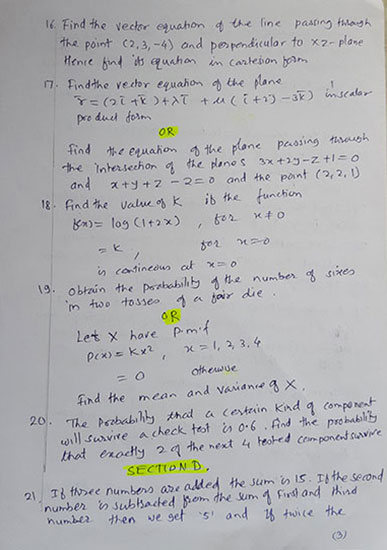 16. Find the vector equation of the line passing through
the point (2, 3, -4) and perpendicular to xz-plane
Hence find its equation in cartesian form
17. Find the vector equation of the plane
r̄ = (2ī + k̄) + λī + μ(ī + 2j̄ - 3k̄) in scalar
product form
OR
Find the equation of the plane passing through
the intersection of the planes 3x+2y-z+1=0
and x+y+z-2=0 and the point (2,2,1)
18. Find the value of K if the function
f(x) = log(1+2x), for x≠0
= K, for x=0
is continous at x=0
19. Obtain the probability of the number of sixes
in two tosses of a fair die.
OR
Let X have p.m.f
P(x) = Kx², x = 1, 2, 3, 4
= 0 otherwise
Find the mean and variance of X.
20. The probability that a certain kind of component
will survive a check test is 0.6. find the probability
that exactly 2 of the next 4 tested component survive
SECTION D.
21. If three numbers are added the sum is 15. If the second
number is subtracted from the sum of first and third
number then we get '5' and if twice the
(3)